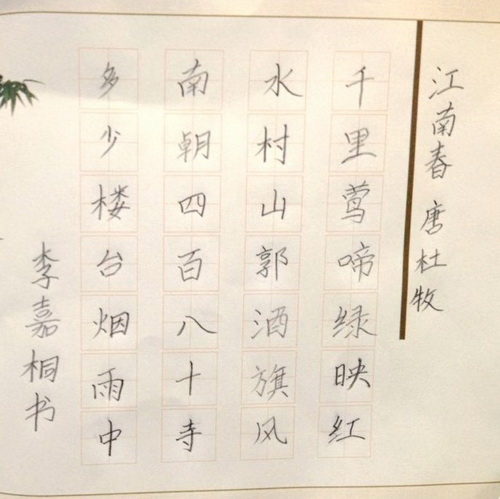 江南春 唐 杜牧
千里莺啼绿映红
水村山郭酒旗风
南朝四百八十寺
多少楼台烟雨中
李嘉桐书